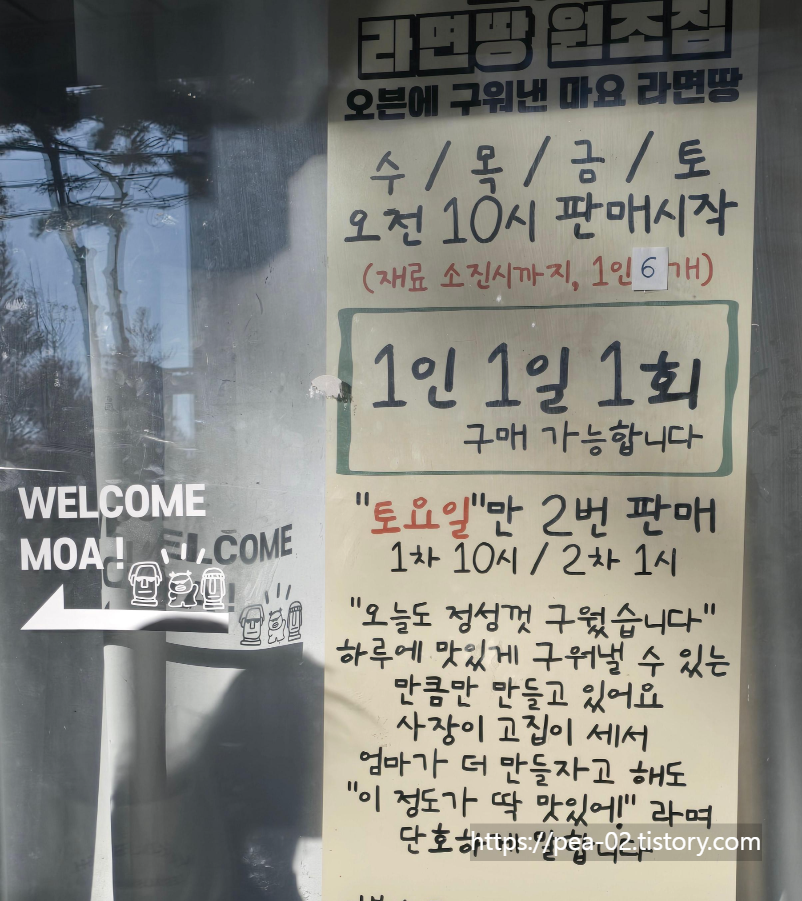 라면땅 원조집
오븐에 구워낸 마요 라면땅
수 / 목 / 금 / 토
오전 10시 판매시작
(재료 소진시까지, 1인 6 개)
1인 1일 1회
구매 가능합니다
"토요일"만 2번 판매
1차 10시 / 2차 1시
"오늘도 정성껏 구웠습니다"
하루에 맛있게 구워낼 수 있는
만큼만 만들고 있어요
사장이 고집이 세서
엄마가 더 만들자고 해도
"이 정도가 딱 맛있어!" 라며
단호하게 일합니다
https://pea-02.tistory.com
WELCOME
MOA !